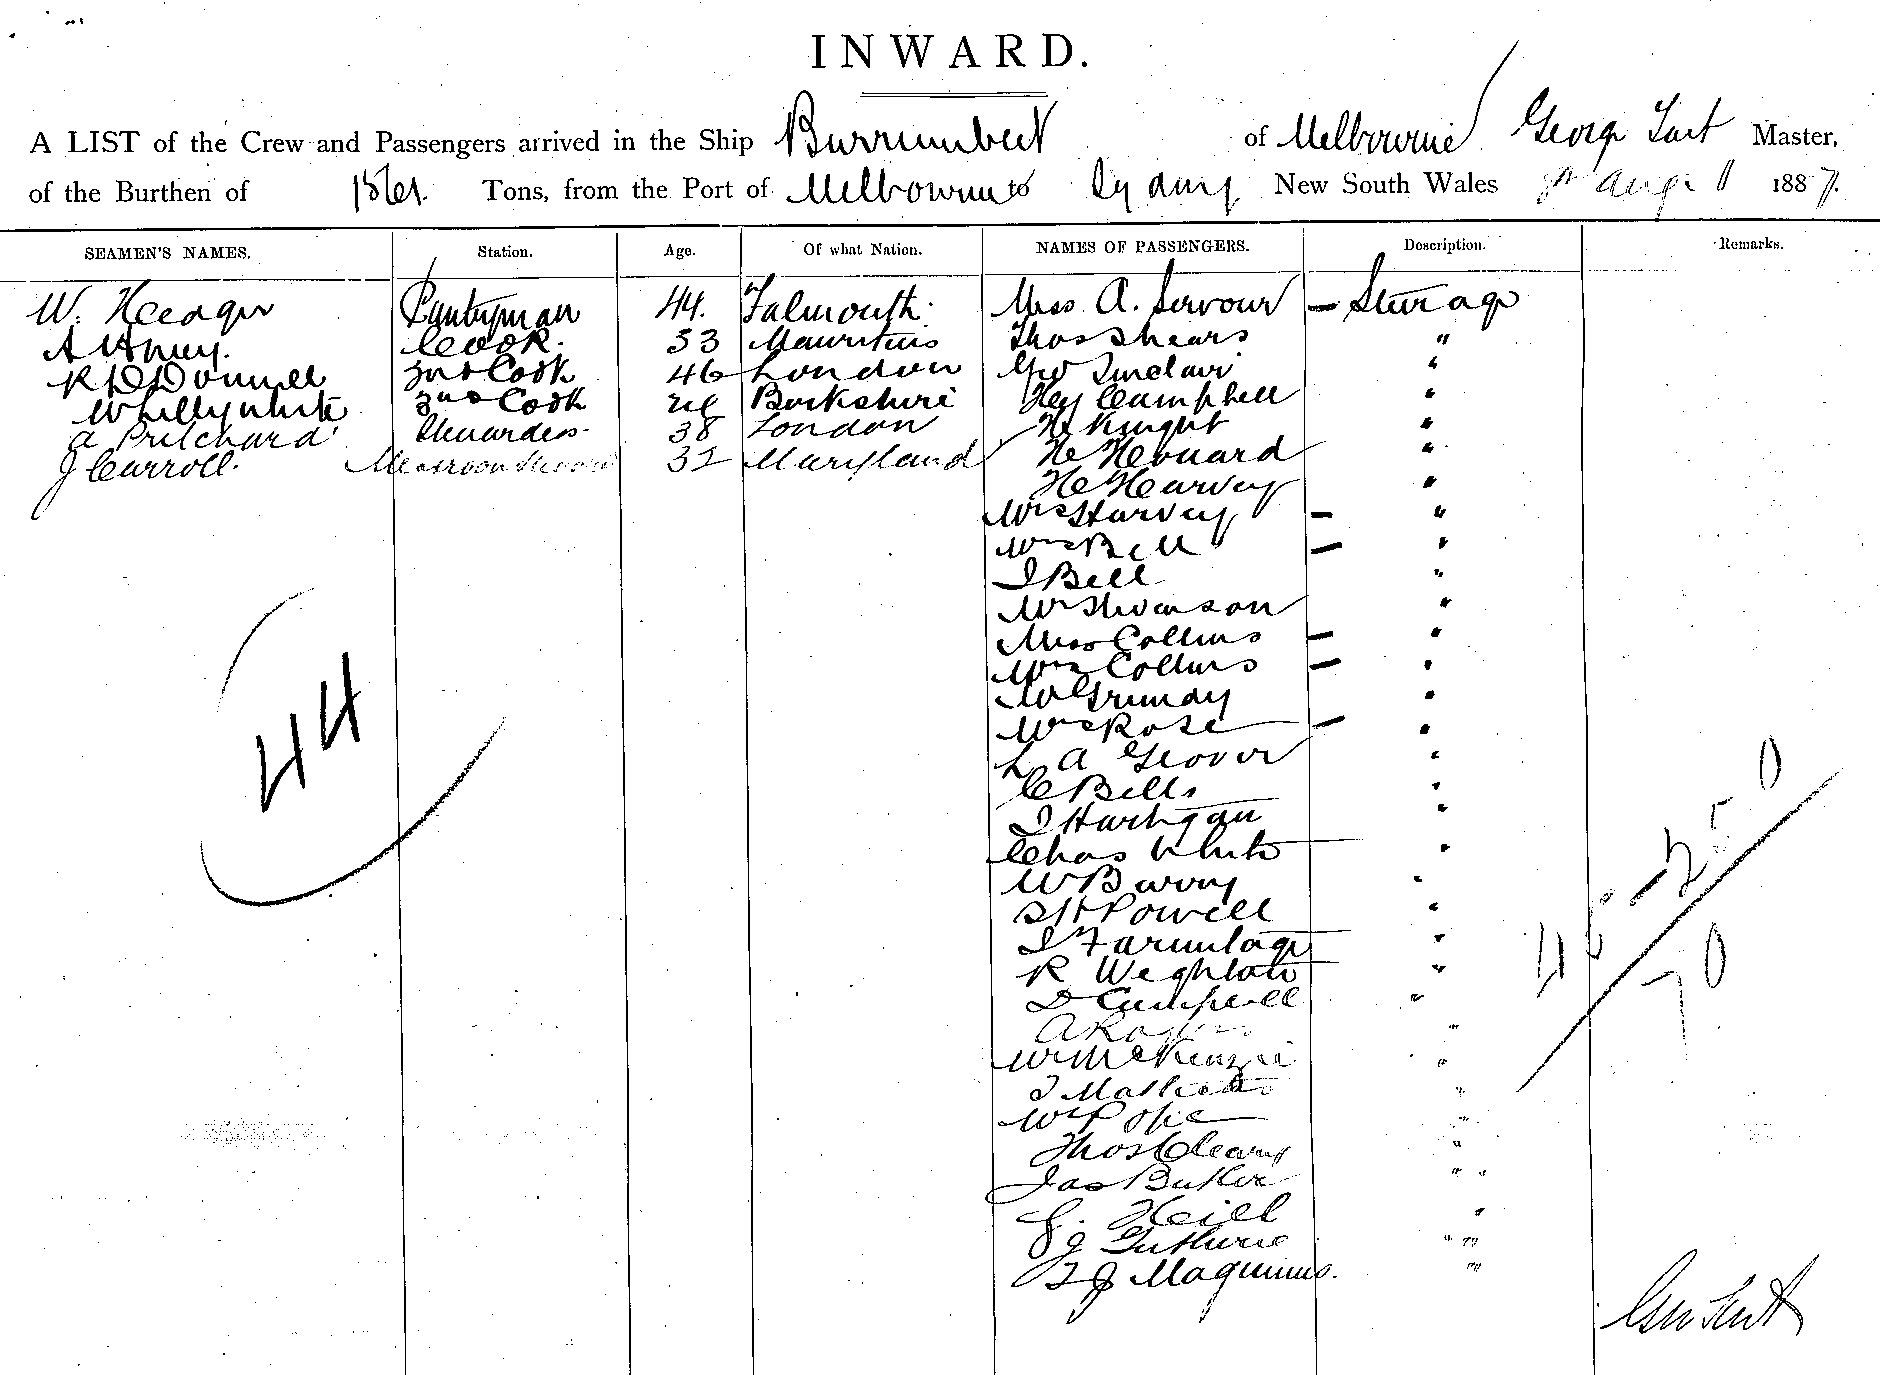 INWARD.
A LIST of the Crew and Passengers arrived in the Ship Burrumbeet of Melbourne George Tait Master,
of the Burthen of Tons, from the Port of Melbourne to Sydney New South Wales 1887.
SEAMEN'S NAMES. Station. Age. Of what Nation. NAMES OF PASSENGERS. Description. Remarks.
W. Pantryman 44. Falmouth. Miss A. Servour — Steerage
Cook. 33 Mauritius Thos Shears "
R O'Donnell 2nd Cook 46 London Geo Sinclair "
W Lillywhite 3rd Cook Berkshire Hy Campbell "
A Pritchard Stewardess 38 London H Knight "
J Carroll. Messroom Steward 32 Maryland H Howard "
H Harvey "
Mrs Harvey — "
Mrs Bell — "
J Bell "
W Swanson "
Miss Collins — "
Mrs Collins — "
W Grundy "
Mrs Rose — "
L A Glover "
C Bills "
J Hartigan "
Chas White "
44
W Barry "
S H Powell "
J "
R "
D Campbell "
A "
W McKenzie "
J "
W Pope "
Thos Cleary "
Jas Butler "
Neill "
J Guthrie "
J Maguinnis. "
Geo Tait